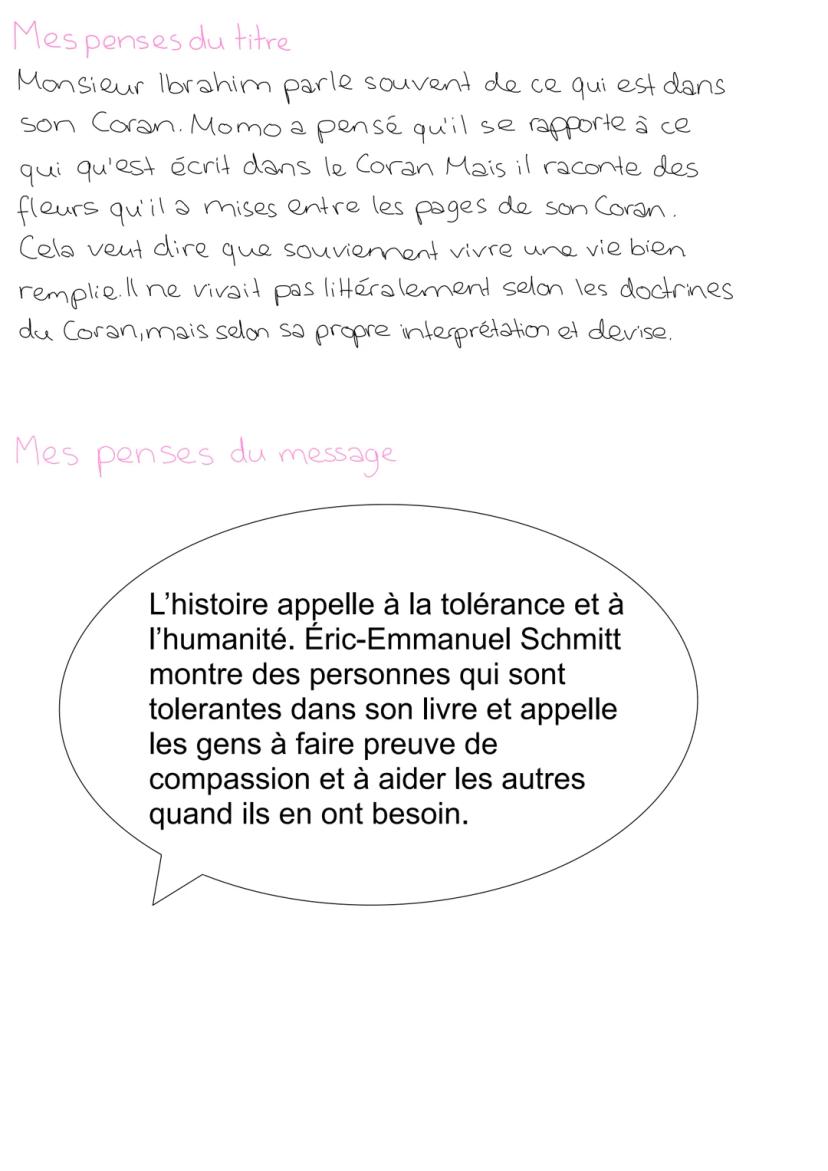 Mes penses du titre
Monsieur Ibrahim parle souvent de ce qui est dans
son Coran. Momo a pensé qu'il se rapporte à ce
qui qu'est écrit dans le Coran Mais il raconte des
fleurs qu'il a mises entre les pages de son Coran.
Cela veut dire que souviennent vivre une vie bien
remplie. Il ne vivait pas littéralement selon les doctrines
du Coran, mais selon sa propre interprétation et devise.
Mes penses du message
L'histoire appelle à la tolérance et à
l'humanité. Éric-Emmanuel Schmitt
montre des personnes qui sont
tolerantes dans son livre et appelle
les gens à faire preuve de
compassion et à aider les autres
quand ils en ont besoin.